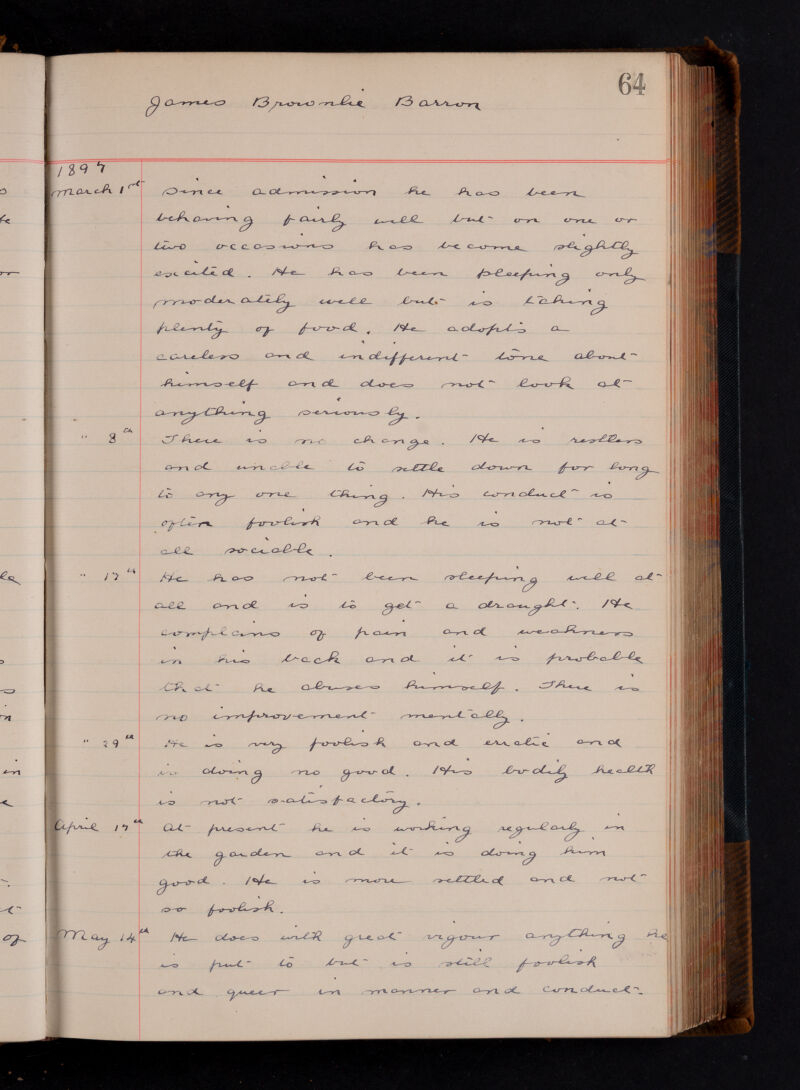 64
James Brownlie Barron
1897
March 1st Since admission he has been
behaving fairly well but on one or
two occasions has become slightly
excited. He has been sleeping only
moderately well but is taking
plenty of food. He adopts a
careless and indifferent tone about
himself and does not look at
anything seriously.
" 8th There is no change. He is restless
and unable to settle down for long
to any one thing. His conduct is
often foolish and he is not at
all sociable.
" 17th He has not been sleeping well at
all and is to get a draught. He
complains of pain and weakness
in his back and it is probable
that he abuses himself. There is
no improvement mentally.
" 29th He is very foolish and erratic and
is doing no good. His bodily health
is not satisfactory.
April 17th At present he is working regularly in
the garden and it is doing him
good. He is more settled and not
so foolish.
May 14th He does with great vigour anything he
is put to but is still foolish
and queer in manner and conduct.
in
of